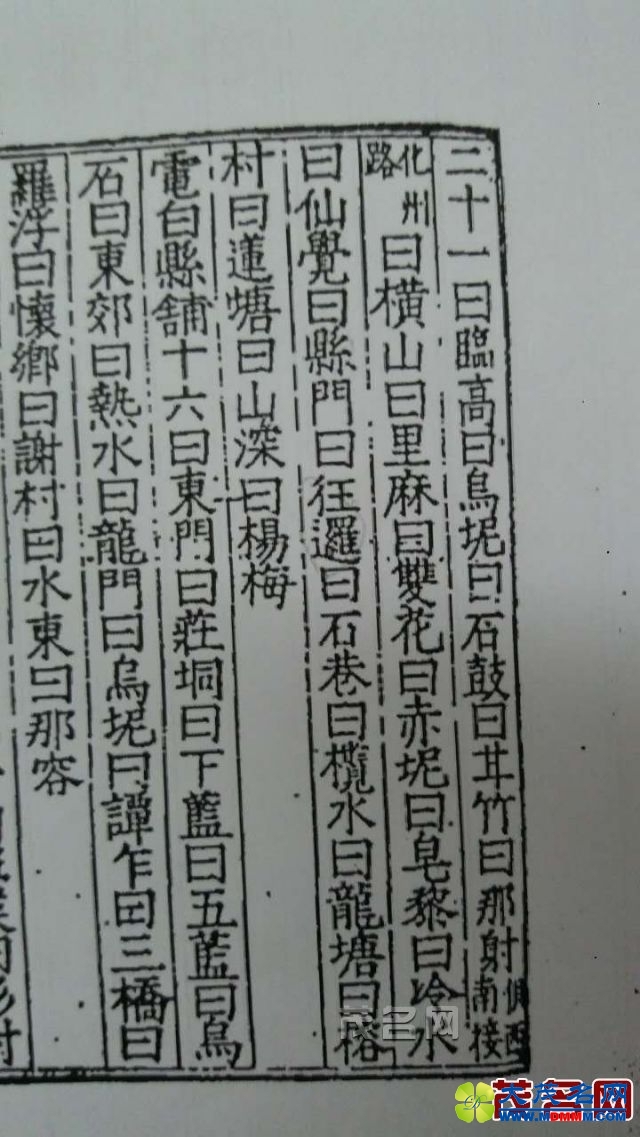 二十一曰臨高曰烏坭曰石鼓曰井竹曰那射俱西南接
化州路曰橫山曰里麻曰雙花曰赤坭曰皂黎曰冷水
曰仙覺曰縣門曰徃邏曰石巷曰欖水曰龍塘曰榕
村曰蓮塘曰山深曰楊梅
電白縣舖十六曰東門曰莊垌曰下藍曰五藍曰烏
石曰東郊曰熱水曰龍門曰烏坭曰譚乍曰三橋曰
羅浮曰懷鄉曰謝村曰水東曰那容
茂名网
大茂名网
WWW.MDMMM.COM